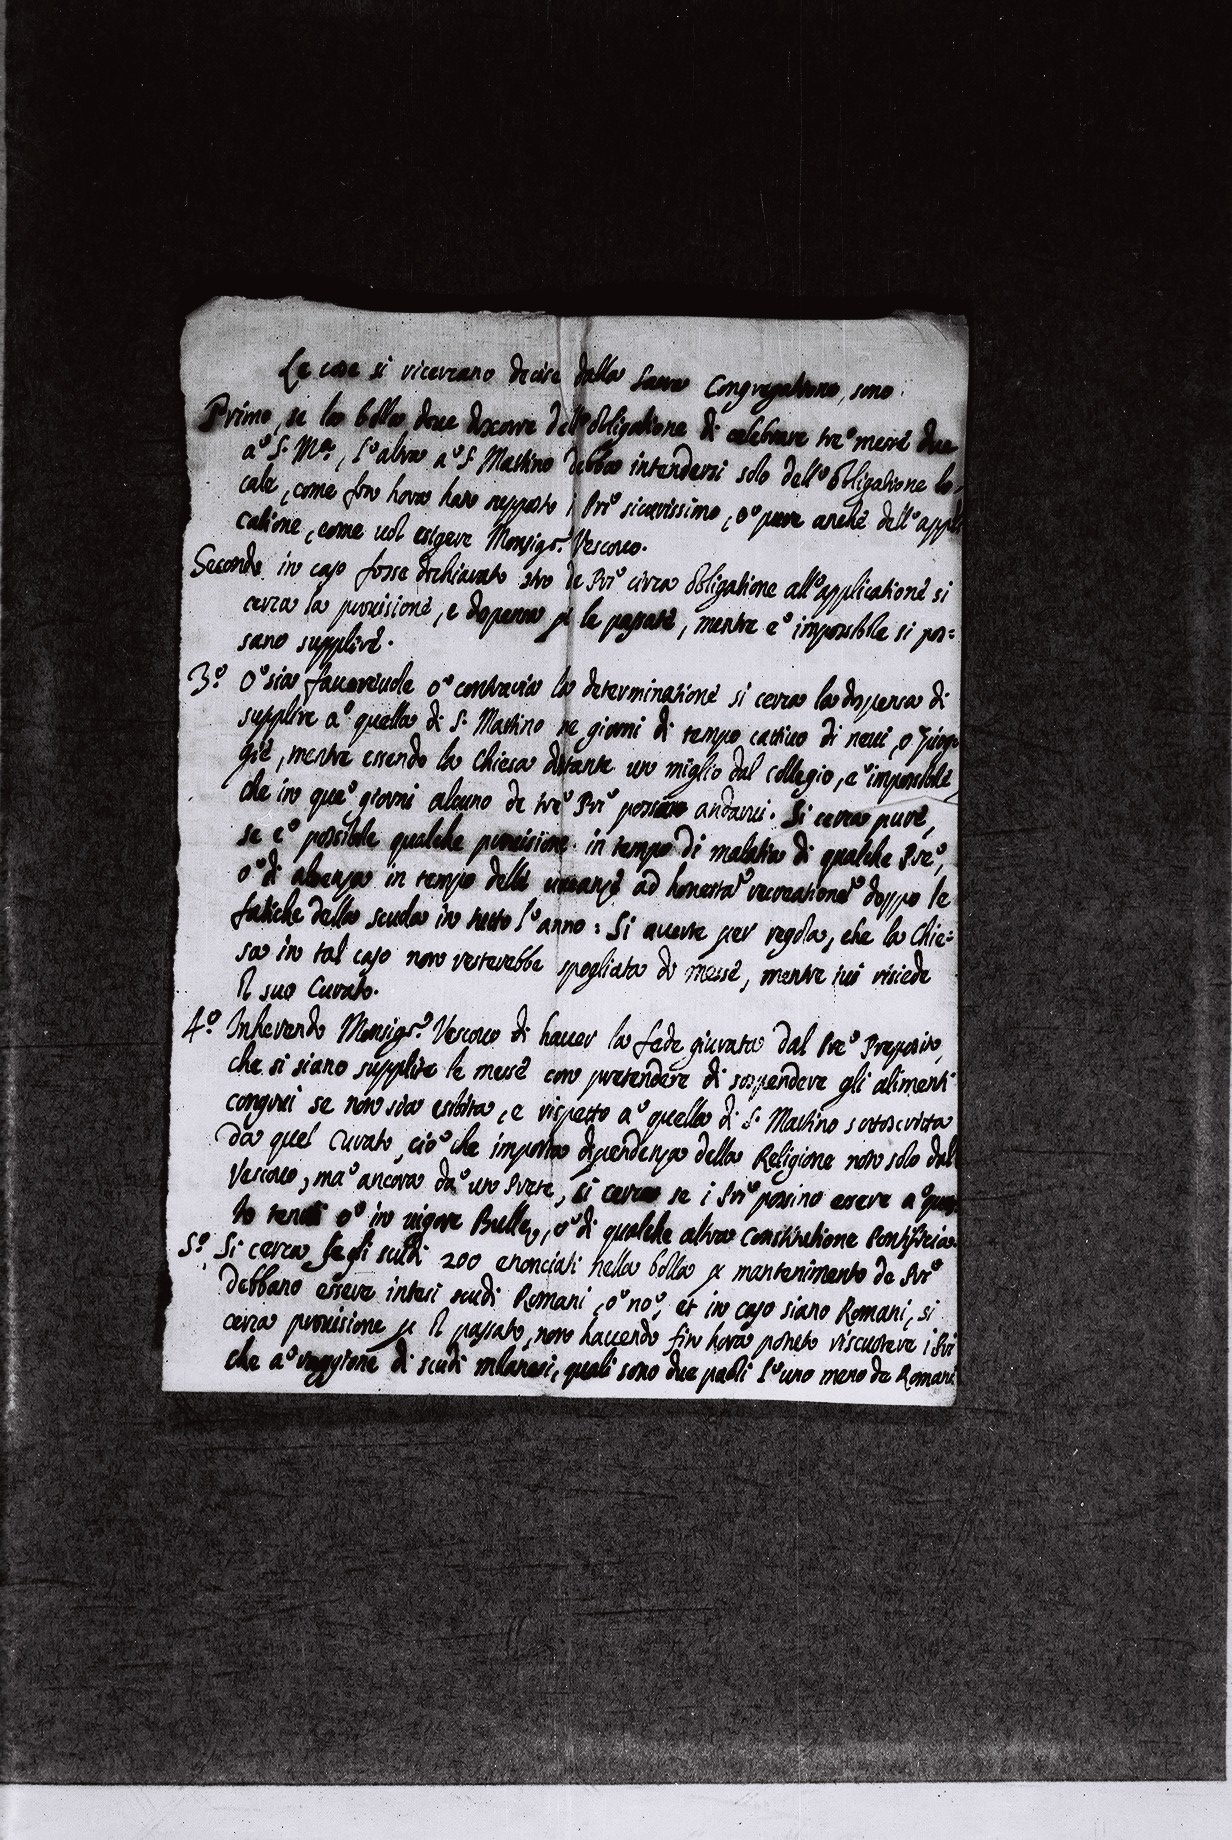 Le cose si ricercano decise dalla Sacra Congregatione, sono.
Primo, se la bolla dove discorre dell'obligatione di celebrare tre messe due
a S. Mª, l'altra a S. Martino debba intendersi solo dell'obligatione lo-
cale, come fin hora hano supposto i Pri sicurissimo, o pure anche dell'appli
catione, come vol esigere Monsigr. Vescovo.
Secondo in caso fosse dichiarato li Pri circa obligatione all'applicatione si
cerca la provisione, e dispensa p le passate, mentre e impossibile si pos=
sano supplire.
3º O sia favorevole o contraria la determinatione si cerca la dispensa di
supplire a quella di S. Martino ne giorni di tempo cattivo di nevi, o piog
gie, mentre essendo la Chiesa distante un miglio dal collegio, e impossibile
che in que giorni alcuno de tre Pri possano andarvi. Si cerca pure,
se e possibile qualche provisione in tempo di malatia di qualche Pre,
o di absenza in tempo delle vacanze ad honestar recreatione doppo le
fatiche della scuola in tutto l'anno: Si averte per regola, che la Chie=
sa in tal caso non resterebbe spogliata di messe, mentre ivi risiede
il suo Curato.
4º Inherendo Monsigr. Vescovo di haver la fede giurata dal Pre Preposito,
che si siano supplite le messe con pretendere di sospendere gli alimenti
congrui se non sia esibita, e rispetto a quella di S. Martino sottoscritta
da quel Curato, cio che importa dipendenza della Religione non solo dal
Vescovo, ma ancora da un Prete, si cerca se i Pri possino essere a ques
to tenuti o in vigore Bulle, o di qualche altra Constitutione Pontificia.
5º Si cerca se gli scudi 200 enonciati nella bolla p mantenimento de Pri
debbano essere intesi scudi Romani, o no, et in caso siano Romani, si
cerca provisione p il passato, non havendo fin hora potuto riscuotere i Pri
che a raggione di scudi milanesi, quali sono due paoli l'uno meno de Romani